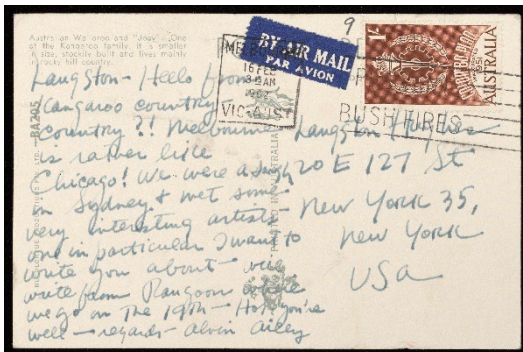 Australian Wallaroo and "Joey" - One
of the Kangaroo family. It is smaller
in size, stockily built and lives mainly
in rocky hill country.
9
BY AIR MAIL
PAR AVION
MELBOURNE
16 FEB
1962
VIC-AUST
BUSH FIRES
1/-
AUSTRALIA
1951
Langston - Hello from
Kangaroo country
country?! Melbourne
is rather like
Chicago! We were
in Sydney & met some
very interesting artists -
one in particular I want to
write you about - will
write from Rangoon where
we go on the 19th - Hope you're
well - regards - Alvin Ailey
Langston Hughes
20 E 127 St
New York 35,
New York
USA
BA205
PRINTED IN AUSTRALIA